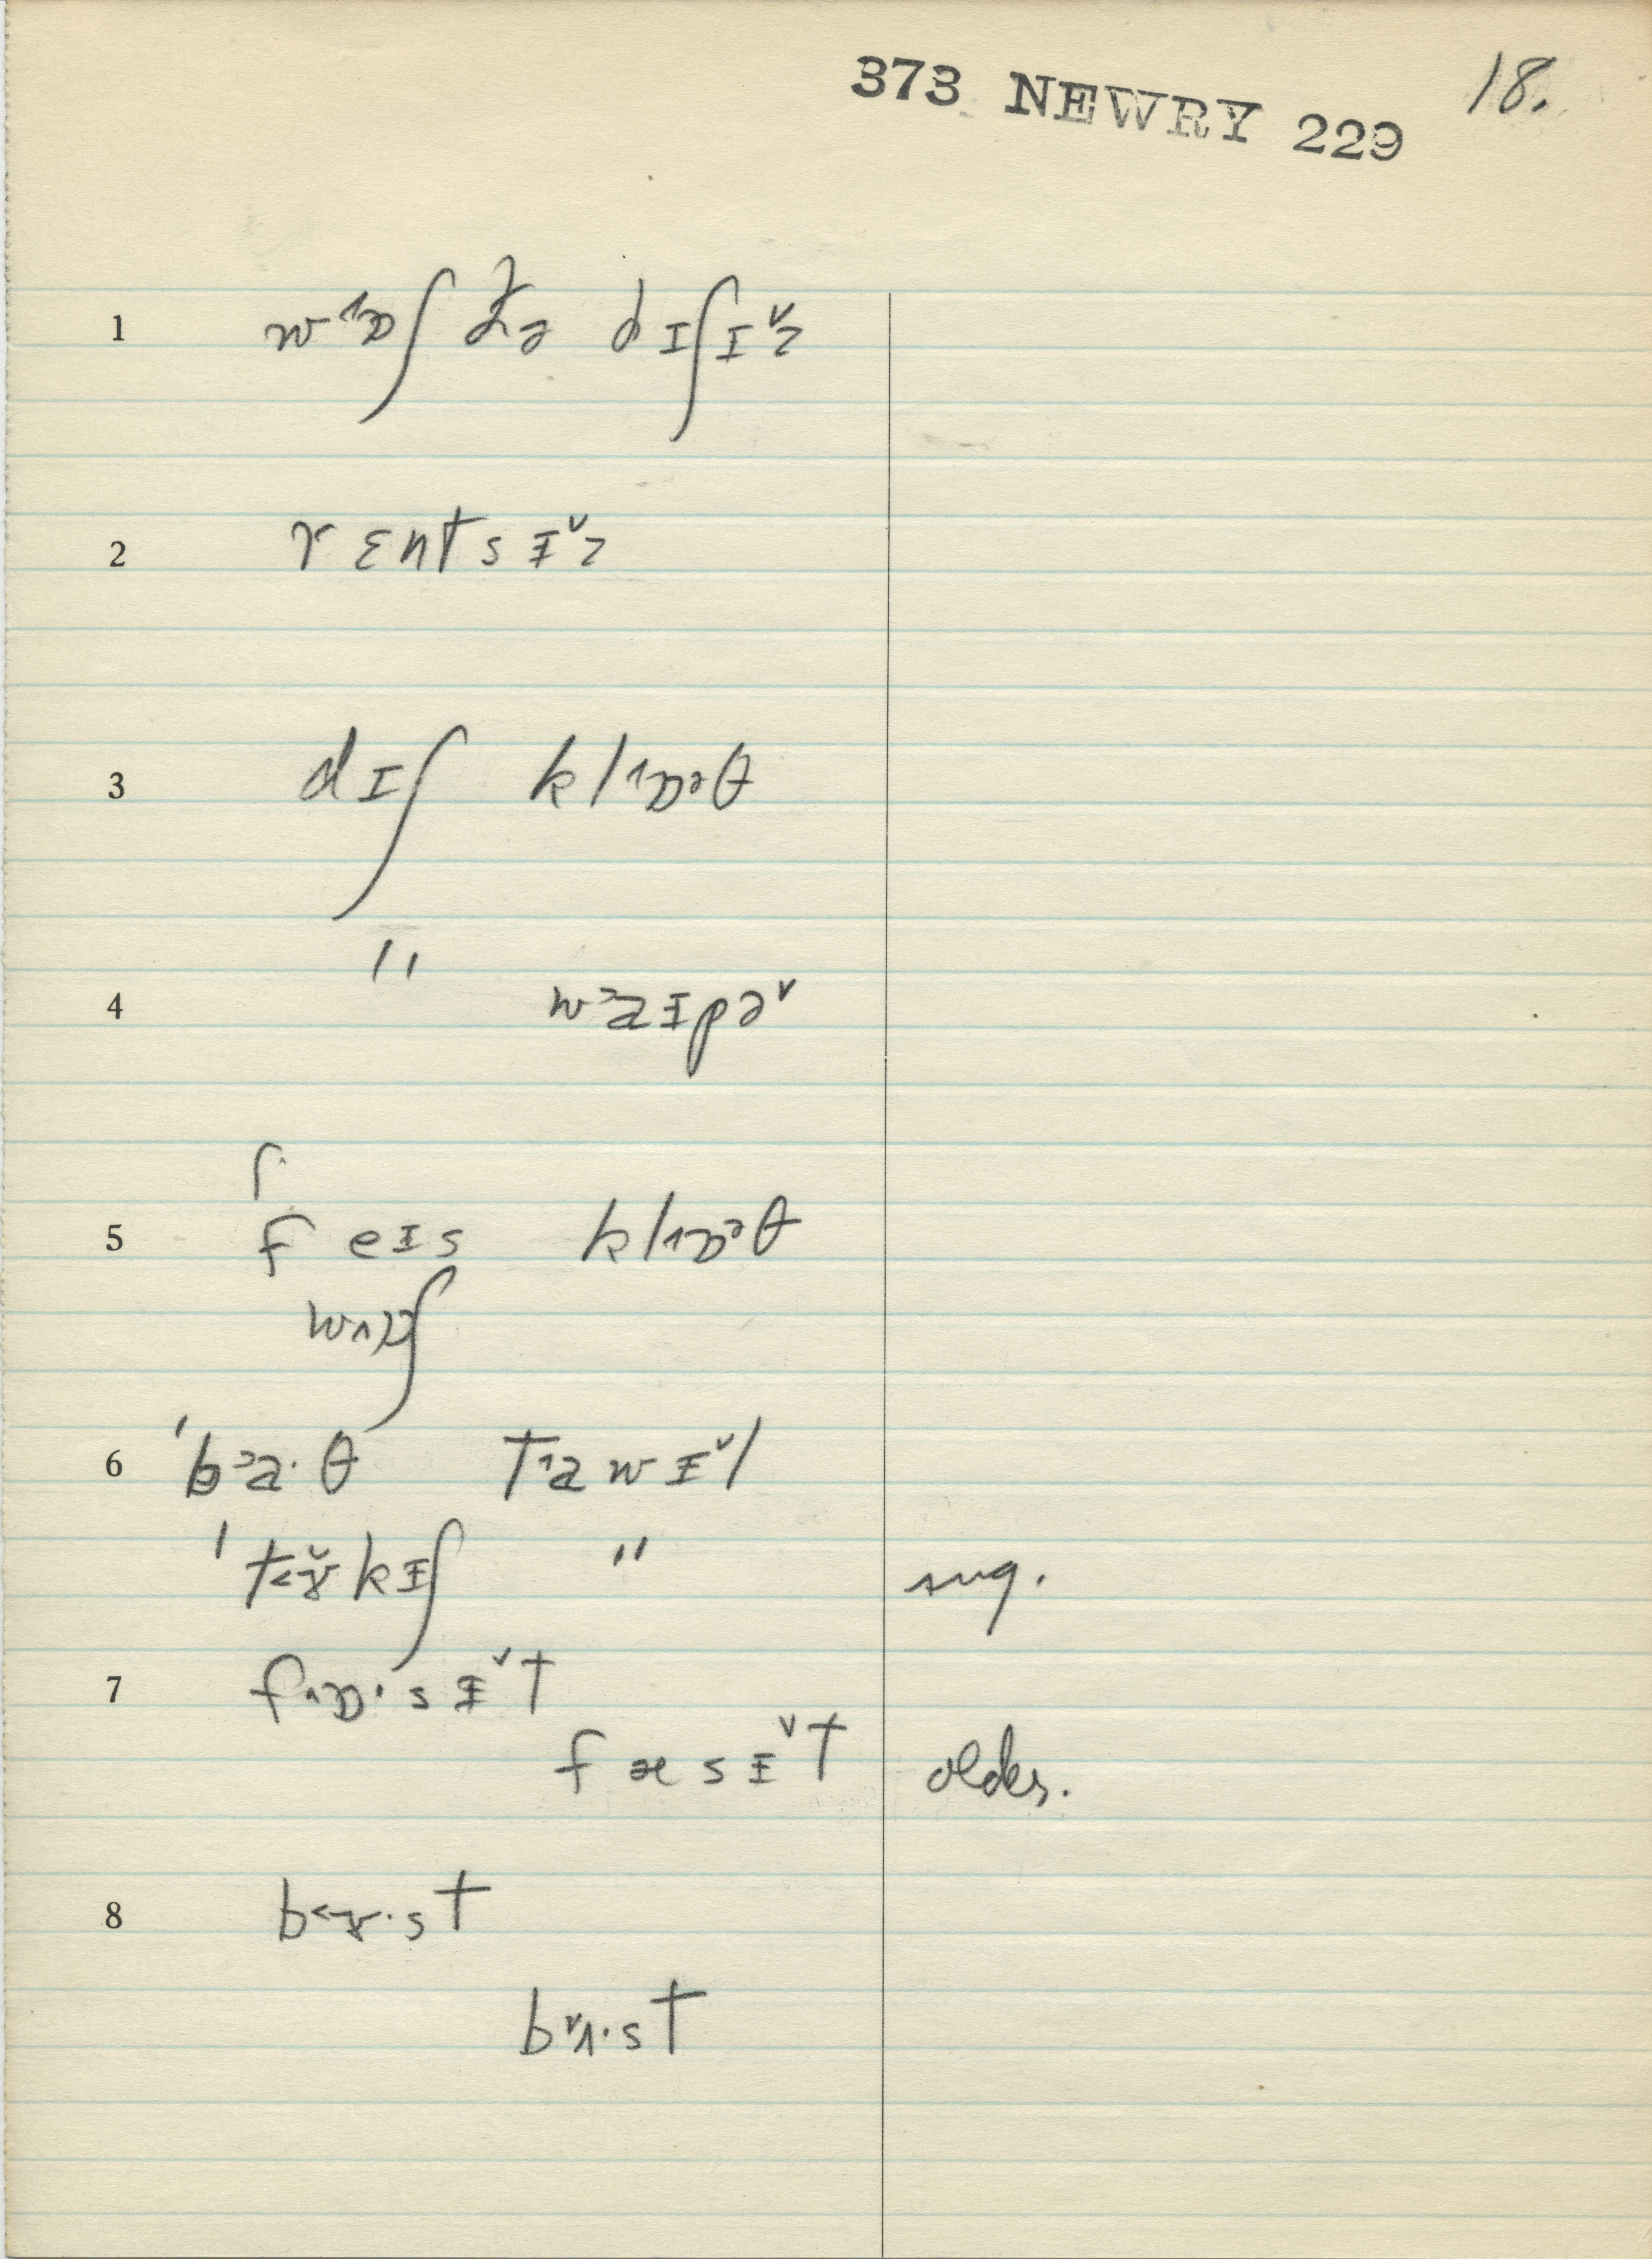 373 NEWRY 229 18.
1 w˄ɒʃ ðə dɪʃɪ˅z
2 rɛntsɪ˅z
3 dɪʃ kl˄ɒᵊθ
4 " w˃aɪpə˅
5 feɪs kl˄ɒᵊθ
w˄ɒʃ
6 ˈb˃a·θ t˄awɪ˅l
ˈt˂ɤ˅kɪʃ " sug.
7 f˄ɒ·sɪ˅t
fæsɪ˅t older.
8 b˂ɤ·st
b˅ʌ·st